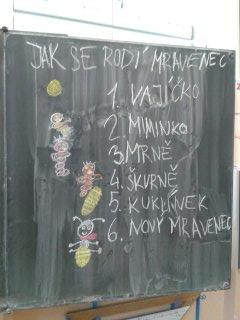 JAK SE RODÍ MRAVENEC
1. VAJÍČKO
2. MIMINKO
3. MRNĚ
4. ŠKURNĚ
5. KUKLÍNEK
6. NOVÝ MRAVENEC